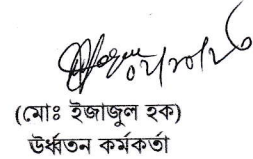 (মোঃ ইজাজুল হক)
উর্ধ্বতন কর্মকর্তা